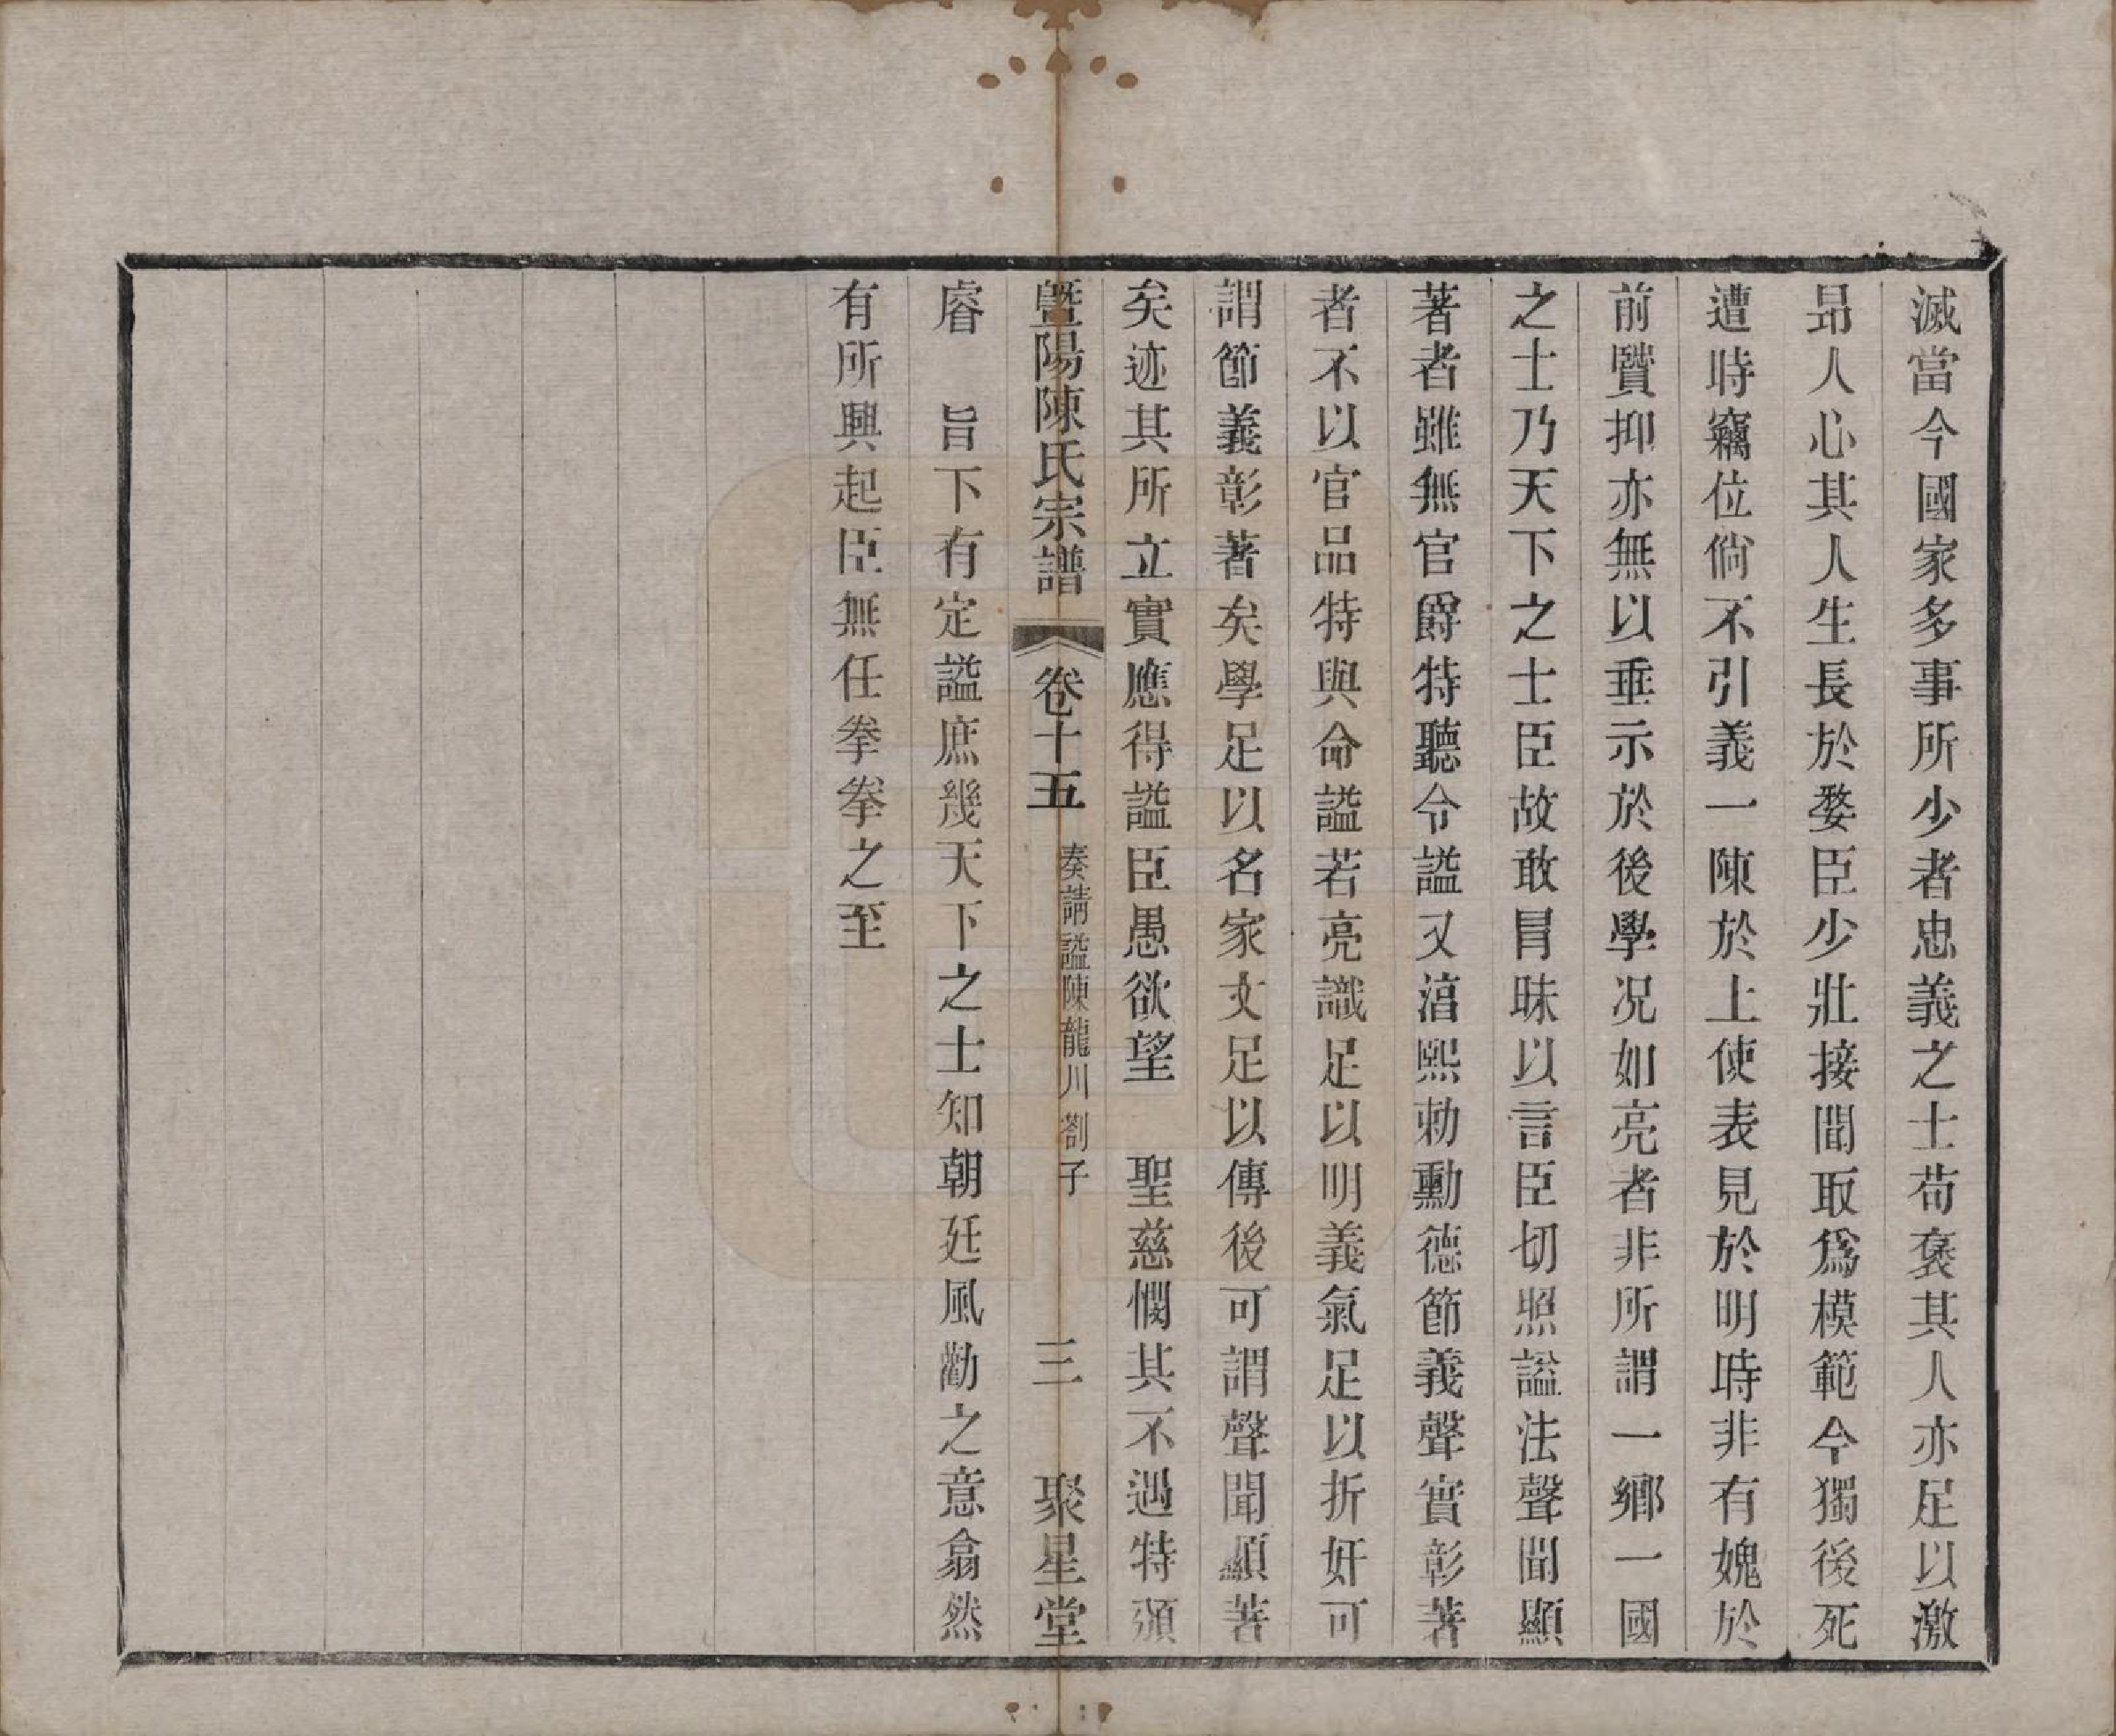 滅當今國家多事所少者忠義之士苟褒其人亦足以激
昻人心其人生長於婺臣少壯接聞取爲模範今獨後死
遭時竊位倘不引義一陳於上使表見於明時非有媿於
前賢抑亦無以垂示於後學况如亮者非所謂一鄉一國
之士乃天下之士臣故敢冒昧以言臣切照謚法聲聞顯
著者雖無官爵特聽令謚又淳熙勅勳德節義聲實彰著
者不以官品特與命謚若亮識足以明義氣足以折奸可
謂節義彰著矣學足以名家文足以傳後可謂聲聞顯著
矣迹其所立實應得謚臣愚欲望　聖慈憫其不遇特頒
暨陽陳氏宗譜　卷十五　奏請謚陳龍川劄子　三　聚星堂
睿　旨下有定謚庶幾天下之士知朝廷風勸之意翕然
有所興起臣無任拳拳之至